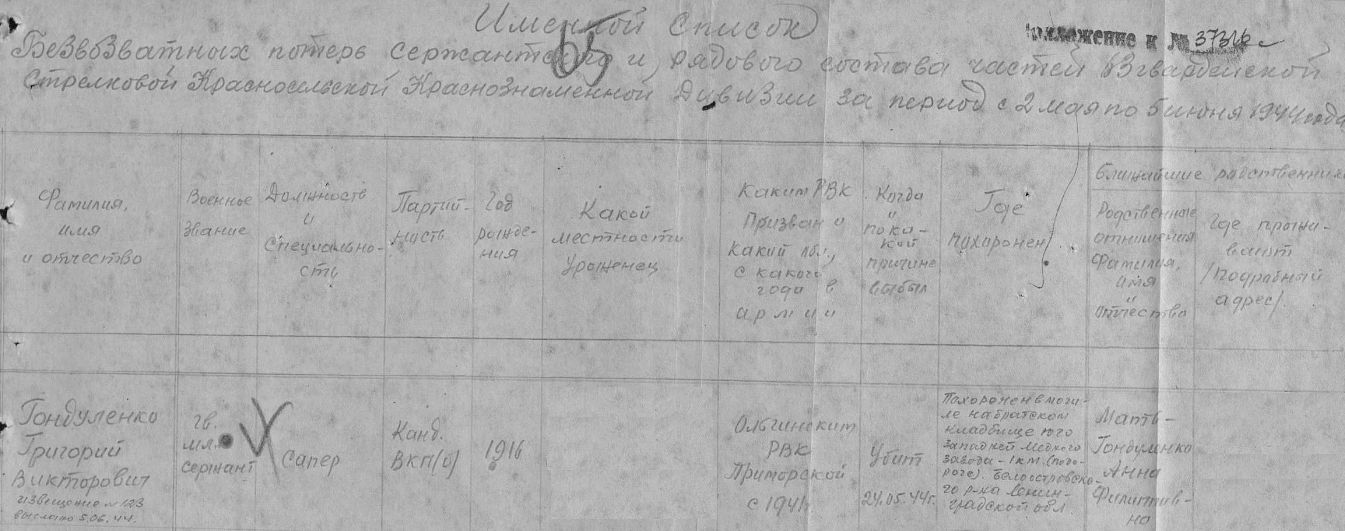 Именной список
Приложение к № 37316с
65
Безвозватных потерь сержантского и рядового состава частей 63 гвардейской
стрелковой Красносельской Краснознаменной Дивизии за период с 2 мая по 5 июня 1944 года
Фамилия,
имя
и отчество
Военное
звание
Должность
и
специально-
сть
Партий-
ность
Год
рожде-
ния
Какой
местности
уроженец
Каким РВК
Призван и
с какого
года в
армии
Когда
и
по ка-
кой
причине
выбыл
Где
похоронен
Ближайшие родственники
Родственные
отношения
Фамилия,
имя
и
отчество
где прожи-
вают
/подробный
адрес/.
Гондуленко
Григорий
Викторович
извещение № 123
выслано 5.06.44г.
гв.
мл.
сержант
Сапер
Канд.
ВКП(б)
1916
Ольгинским
РВК
Приморской
с 1941г
Убит
24.05.44г.
Похоронен в моги-
ле на братском
кладбище юго
западней Медного
завода - 1 км (по до-
роге). Белоостровско-
го р-на Ленин-
градской обл.
Мать -
Гондуленко
Анна
Филиппов-
на